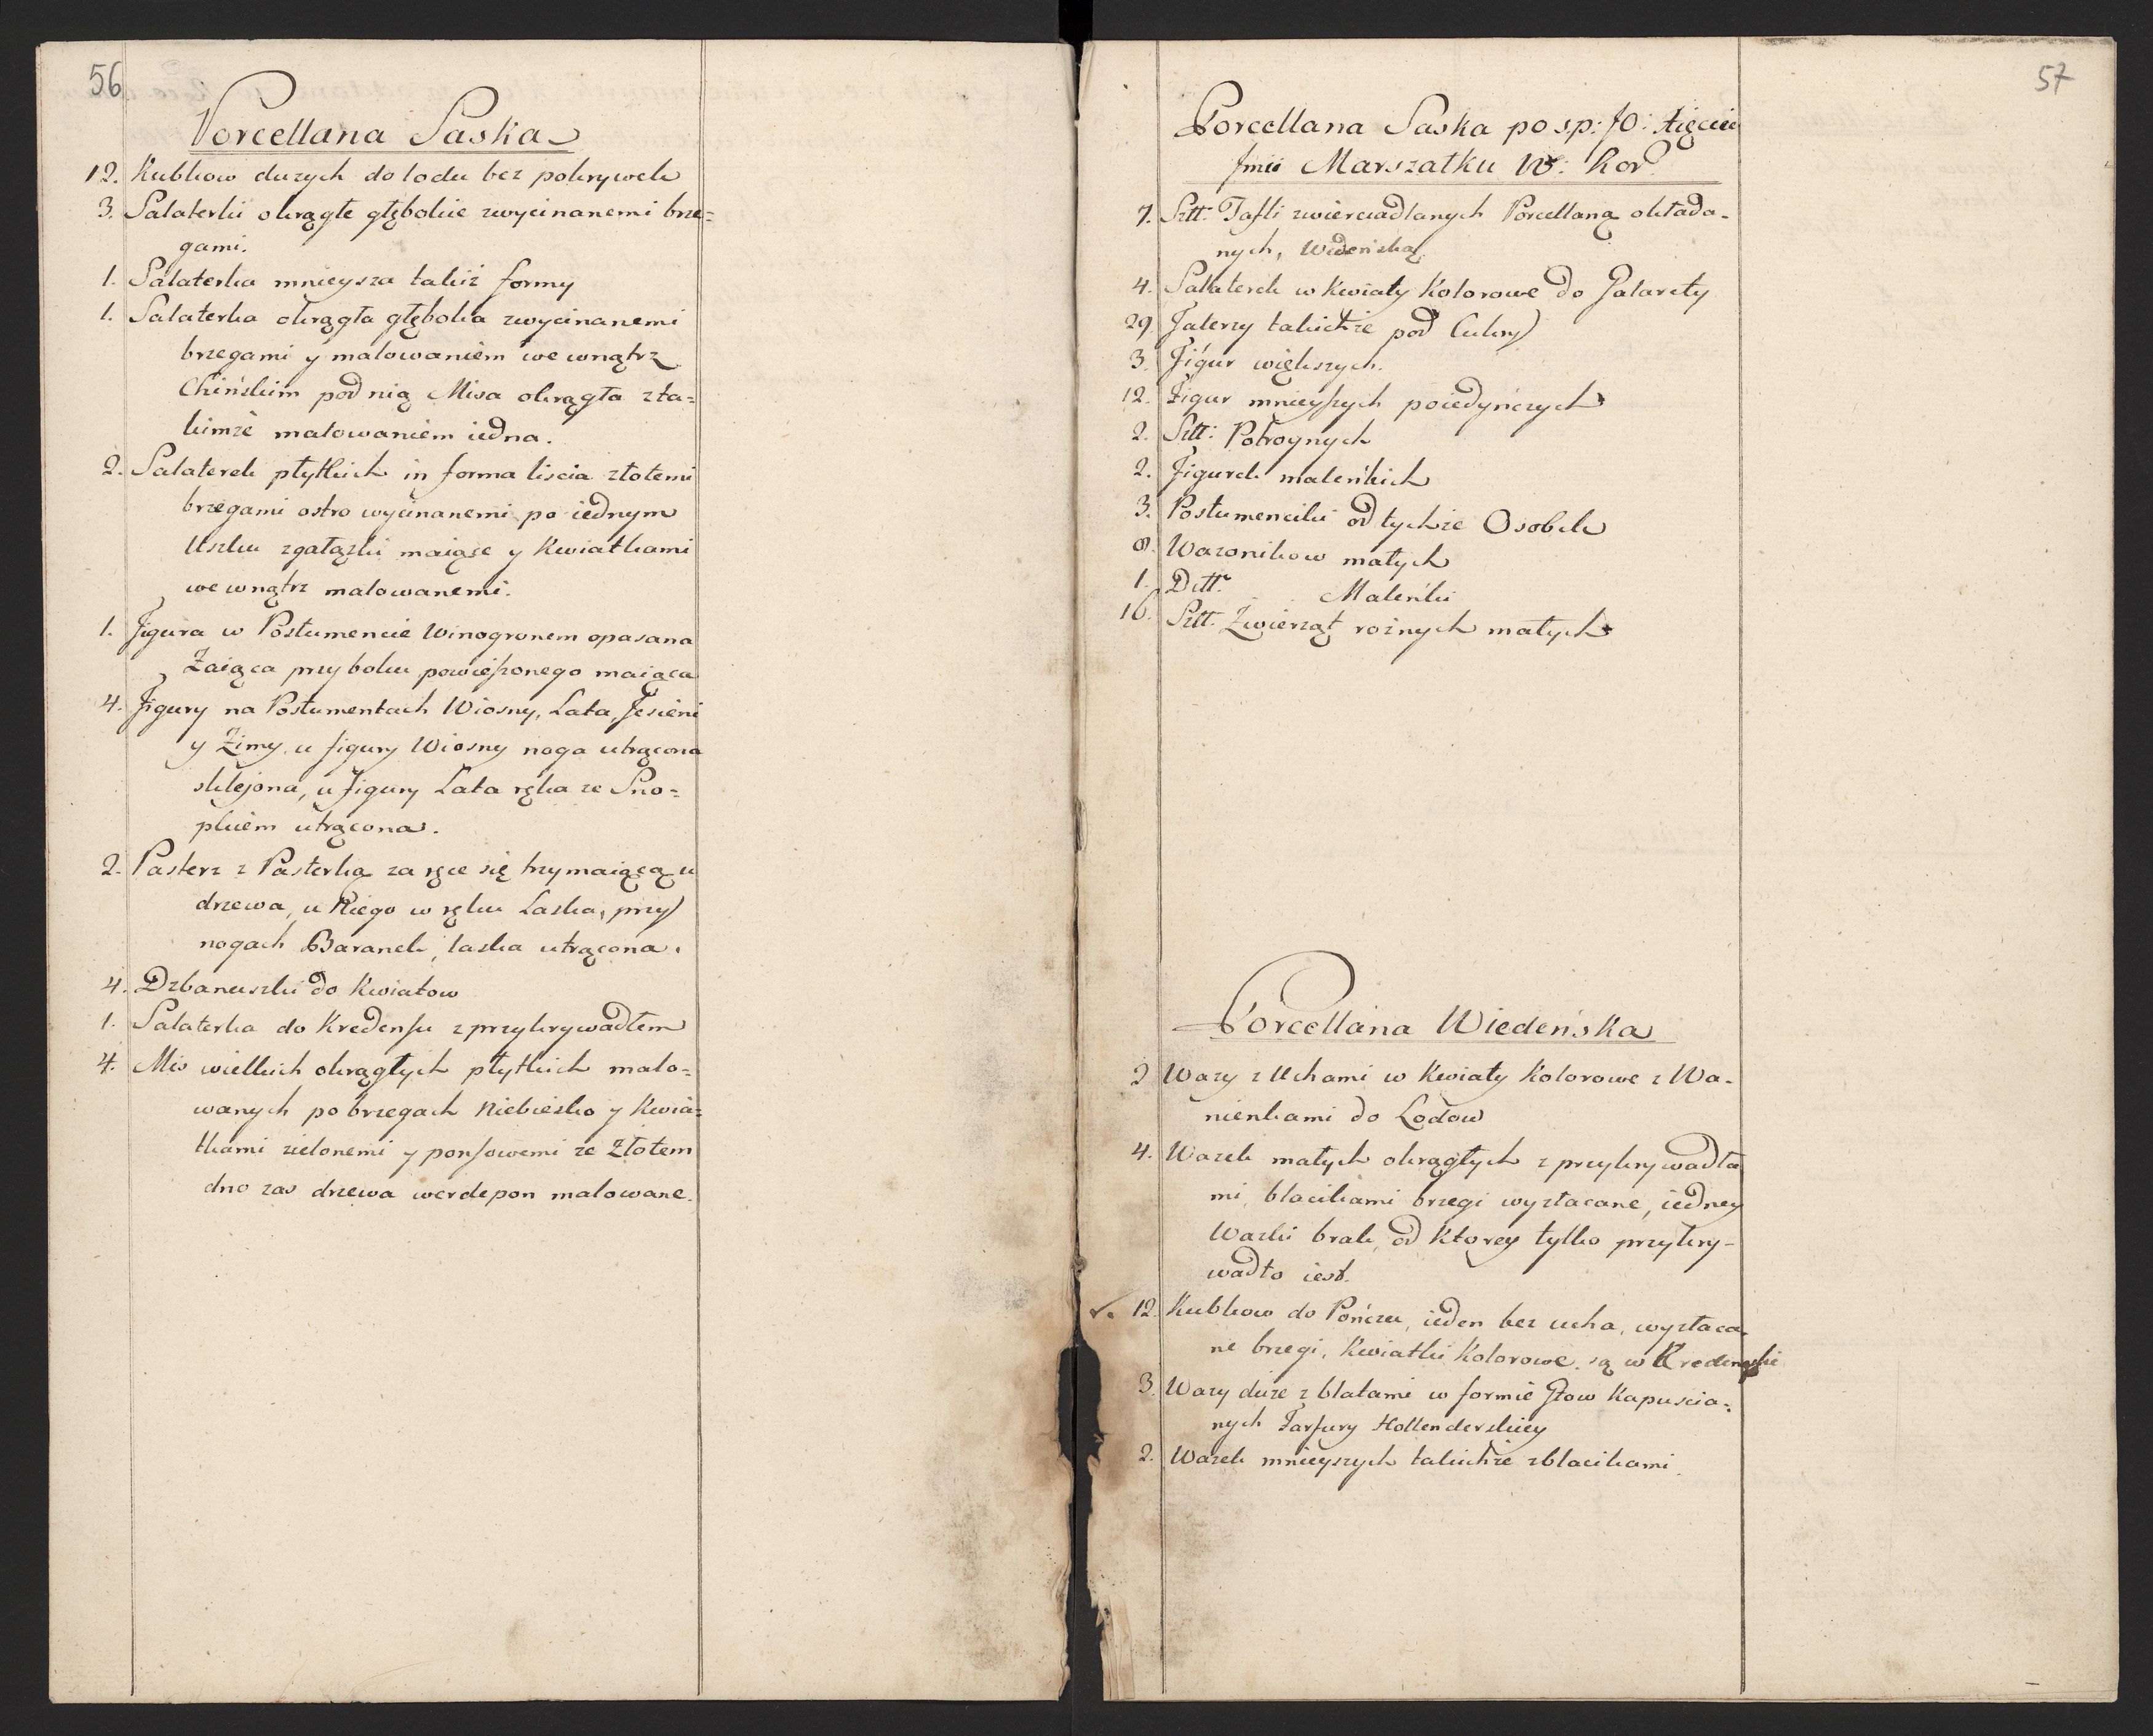 56
Porcellana Saska
12. Kubkow duzych do lodu bez pokrywek
3. Salaterki okrągłe głębokie zwycinanemi brze=
gami.
1. Salaterka mnieysza takiż formy
1. Salaterka okrągła głęboka zwycinanemi
brzegami y malowaniem we wnątrz
Chińskim pod nią Misa okrągła zta=
kimże malowaniem iedna.
2. Salaterek płytkich in forma liscia złotemi
brzegami ostro wycinanemi po iednym
Uszku zgałązki maiące y Kwiatkami
we wnątrz malowanemi.
1. Figura w Postumencie Winogronem opasana
Zaiąca przy boku powieszonego maiąca
4. Figury na Postumentach Wiosny, Lata, Jesieni
y Zimy, u figury Wiosny noga utrącona
sklejona, u Figury Lata ręka ze Sno=
pkiem utrącona.
2. Pasterz z Pasterką za ręce się trzymaiącą u
drzewa, u Niego w ręku Laska, przy
nogach Baranek, laska utrącona.
4. Dzbanuszki do Kwiatow
1. Salaterka do Kredensu z przykrywadłem
4. Mis wielkich okrągłych płytkich malo=
wanych po brzegach Niebiesko y Kwia=
tkami zielonemi y ponsowemi ze Złotem
dno zas drzewa werdepon malowane.
57
Porcellana Saska po s.p: JO: Xięciu
Jmci Marszałku W: Kor.
7. Sztt: Tafli zwierciadlanych Porcellaną okłada-
nych, Wideńską
4. Salaterek w Kwiaty Kolorowe do Galarety
29. Talerzy takichże pod Cukry
3. Figur większych.
12. Figur mnieyszych poiedyńczych
2. Sztt: Potroynych
2. Figurek maleńkich
3. Postumenciki od tychże Osobek
8. Wazonikow małych
1. Ditt. Maleńki
16. Sztt. Zwierząt rożnych małych
Porcellana Wiedeńska
2 Wazy z Uchami w Kwiaty Kolorowe z Wa-
nienkami do Lodow
4. Wazek małych okrągłych z przykrywadła
mi, blacikami brzegi wyzłacane, iedney
Wazki brak, od Ktorey tylko przykry-
wadło iest.
✓. 12. Kubkow do Pończu, ieden bez ucha, wyzłaca-
ne brzegi, Kwiatki Kolorowe, są w Kredensie
3. Wazy duże z blatami w formie Głow Kapuscia=
nych Farfury Hollenderskiey
2. Wazek mnieyszych takichże zblacikami.